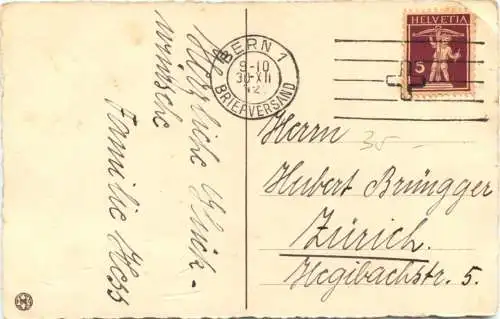 Herzliche Glück-
wünsche
Familie Hess
BERN 1
9-10
30·XII
12
BRIEFVERSAND
HELVETIA
5
35-
Herrn
Hubert Brüngger
Zürich.
Hegibachstr. 5.